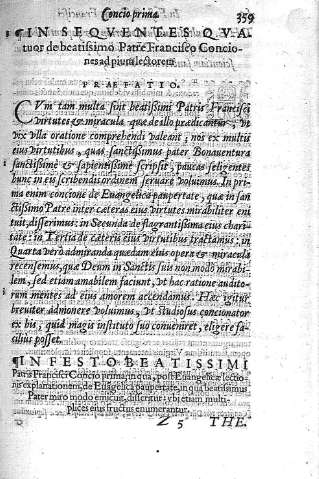 Concio prima. 359
¶ IN SEQVENTES QVA
tuor de beatissimo Patre Francisco Concio-
nes ad pium lectorem
PRÆFATIO.
CVm tam multa sint beatissimi Patris Francisci
virtutes & miracula quæ de illo prædicantur, ut
vix ulla oratione comprehendi valeant; nos ex multis
eius virtutibus, quas sanctissimus pater Bonauentura
sanctissime & sapientissime scripsit, paucas seligentes
hunc in eis scribendis ordinem seruare voluimus. In pri-
ma enim concione de Euangelica paupertate, quæ in san-
ctissimo Patre inter cæteras eius virtutes mirabiliter eni
tuit, disserimus: in Secunda de flagrantissima eius chari-
tate: in Tertia de cæteris eius virtutibus tractamus: in
Quarta verò admiranda quædam eius opera & miracula
recensemus, quæ Deum in Sanctis suis non modo mirabi-
lem, sed etiam amabilem faciunt, ut hac ratione audito-
rum mentes ad eius amorem accendamus. Hæc igitur
breuiter admonere volumus, ut studiosus concionator
ex his, quid magis instituto suo conueniret, eligere fa-
cilius posset.
¶ IN FESTO BEATISSIMI
Patris Francisci Concio prima, in qua, post Euangelicæ lectio-
nis explanationem, de Euāgelica paupertate, in qua beatissimus
Pater miro modo emicuit, disseritur: vbi etiam multi-
plices eius fructus enumerantur.
Z 5 THE.